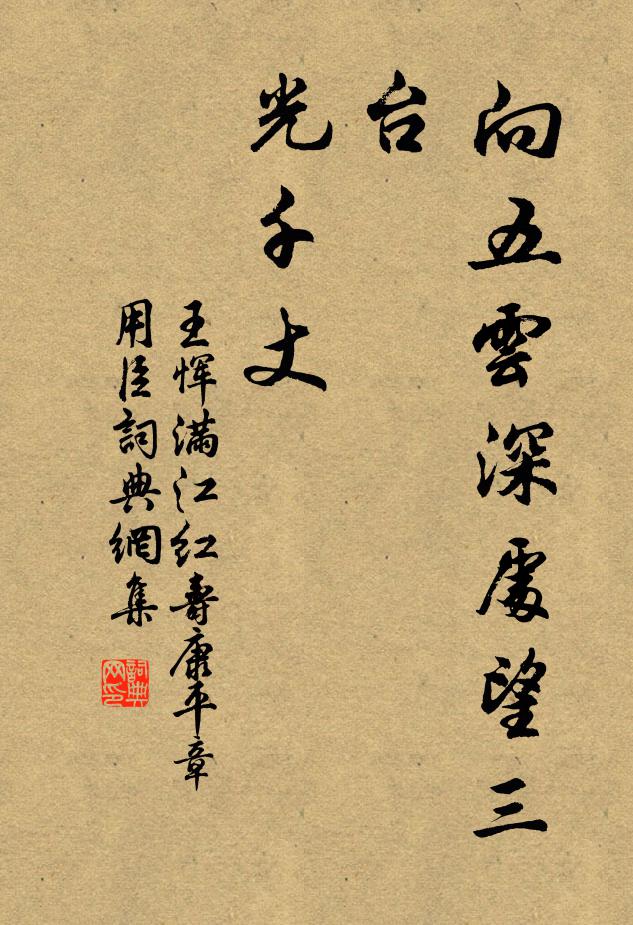 向五雲深處望三
台
光千丈
王恽满江红壽康平章
用臣詞典網集
詞典网印